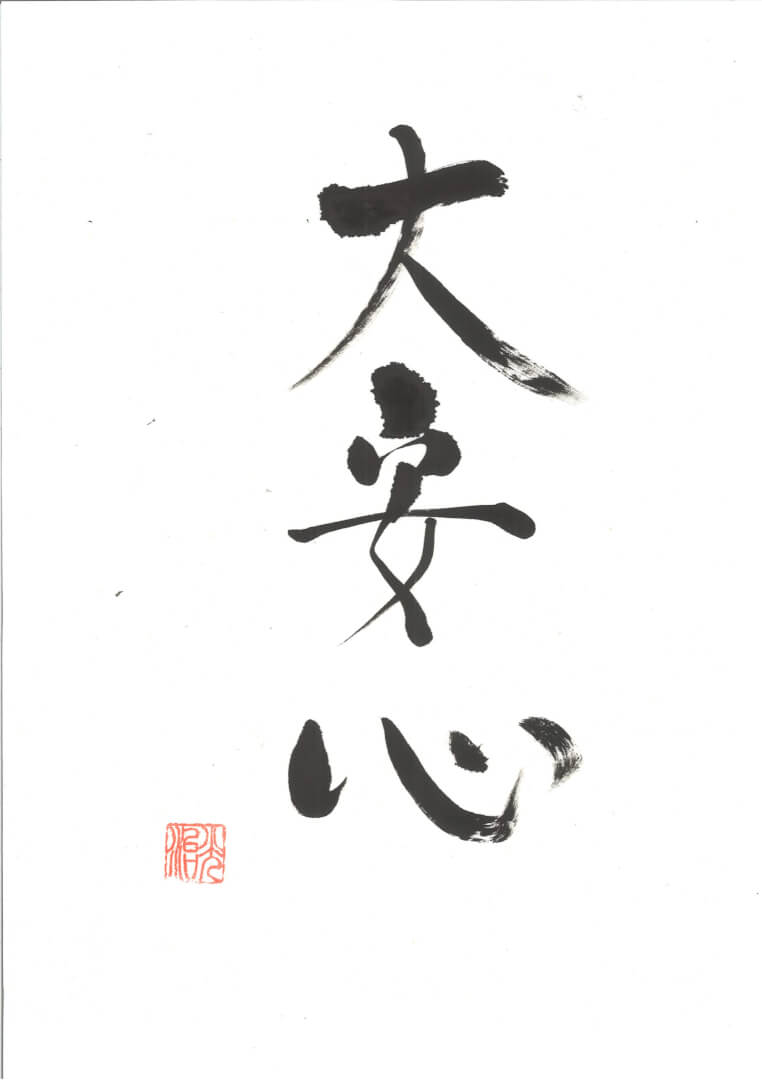 大安心